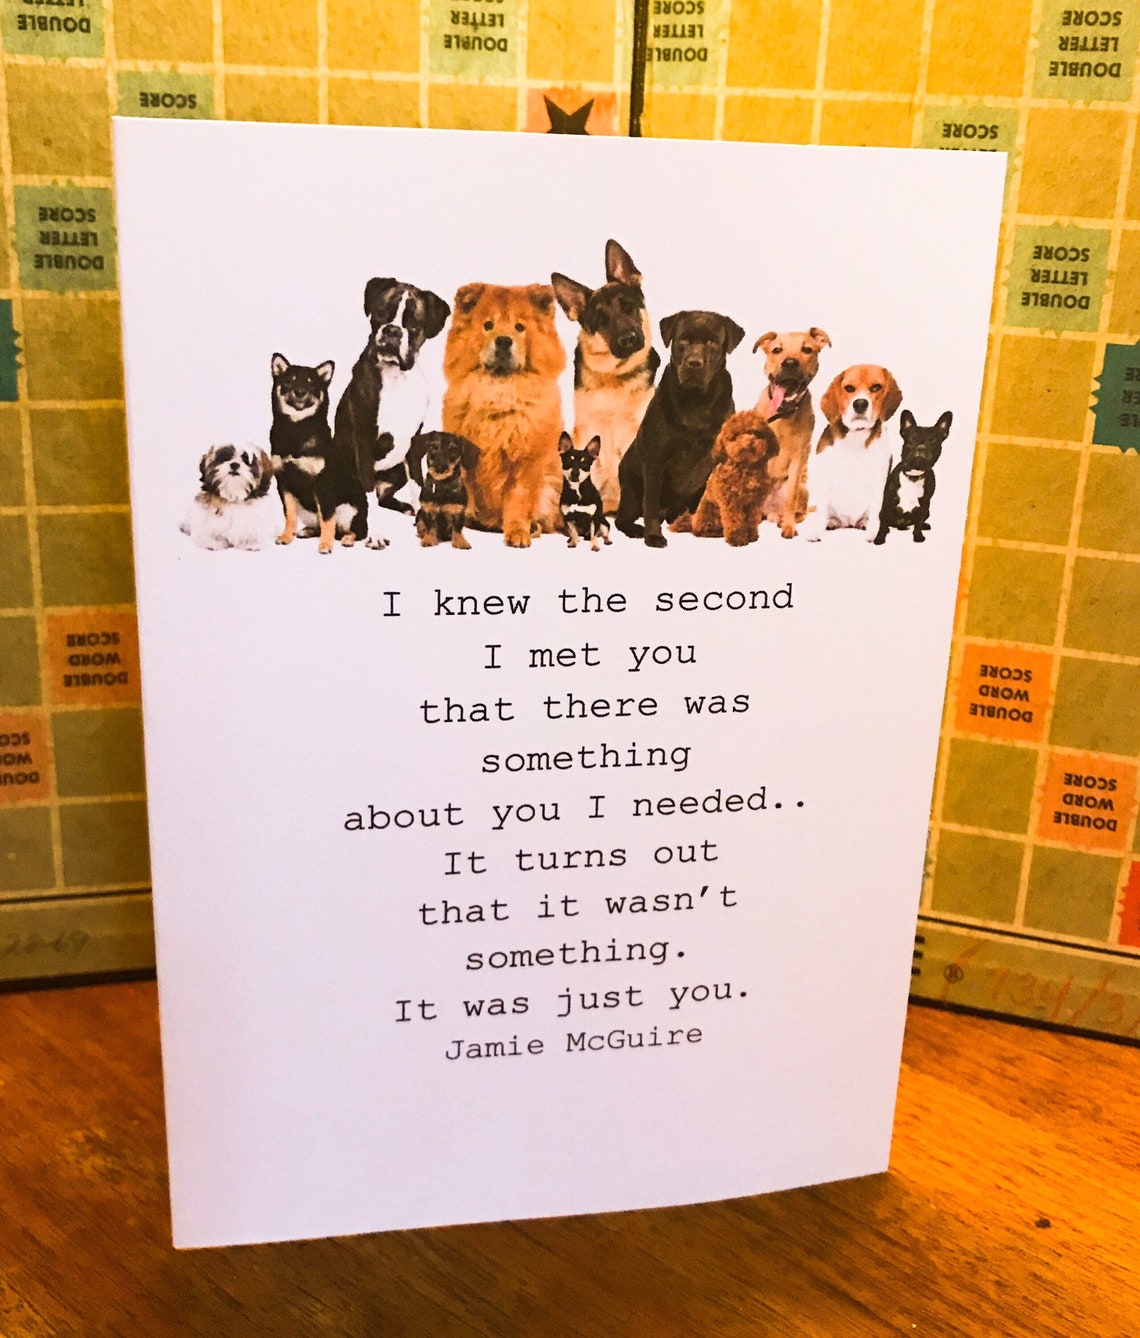 DOUBLE
LETTER
DOUBLE
SCORE
LETTER
DOUBLE
SCORE
LETTER
DOUBLE
SCORE
SCORE
SCORE
LETTER
DOUBLE
SCORE
LETTER
DOUBLE
I knew the second
I met you
that there was
something
about you I needed..
It turns out
that it wasn't
something.
It was just you.
Jamie McGuire
SCORE
WORD
DOUBLE
SCORE
WORD
DOUBLE
SCORE
WORD
DOUBLE
®